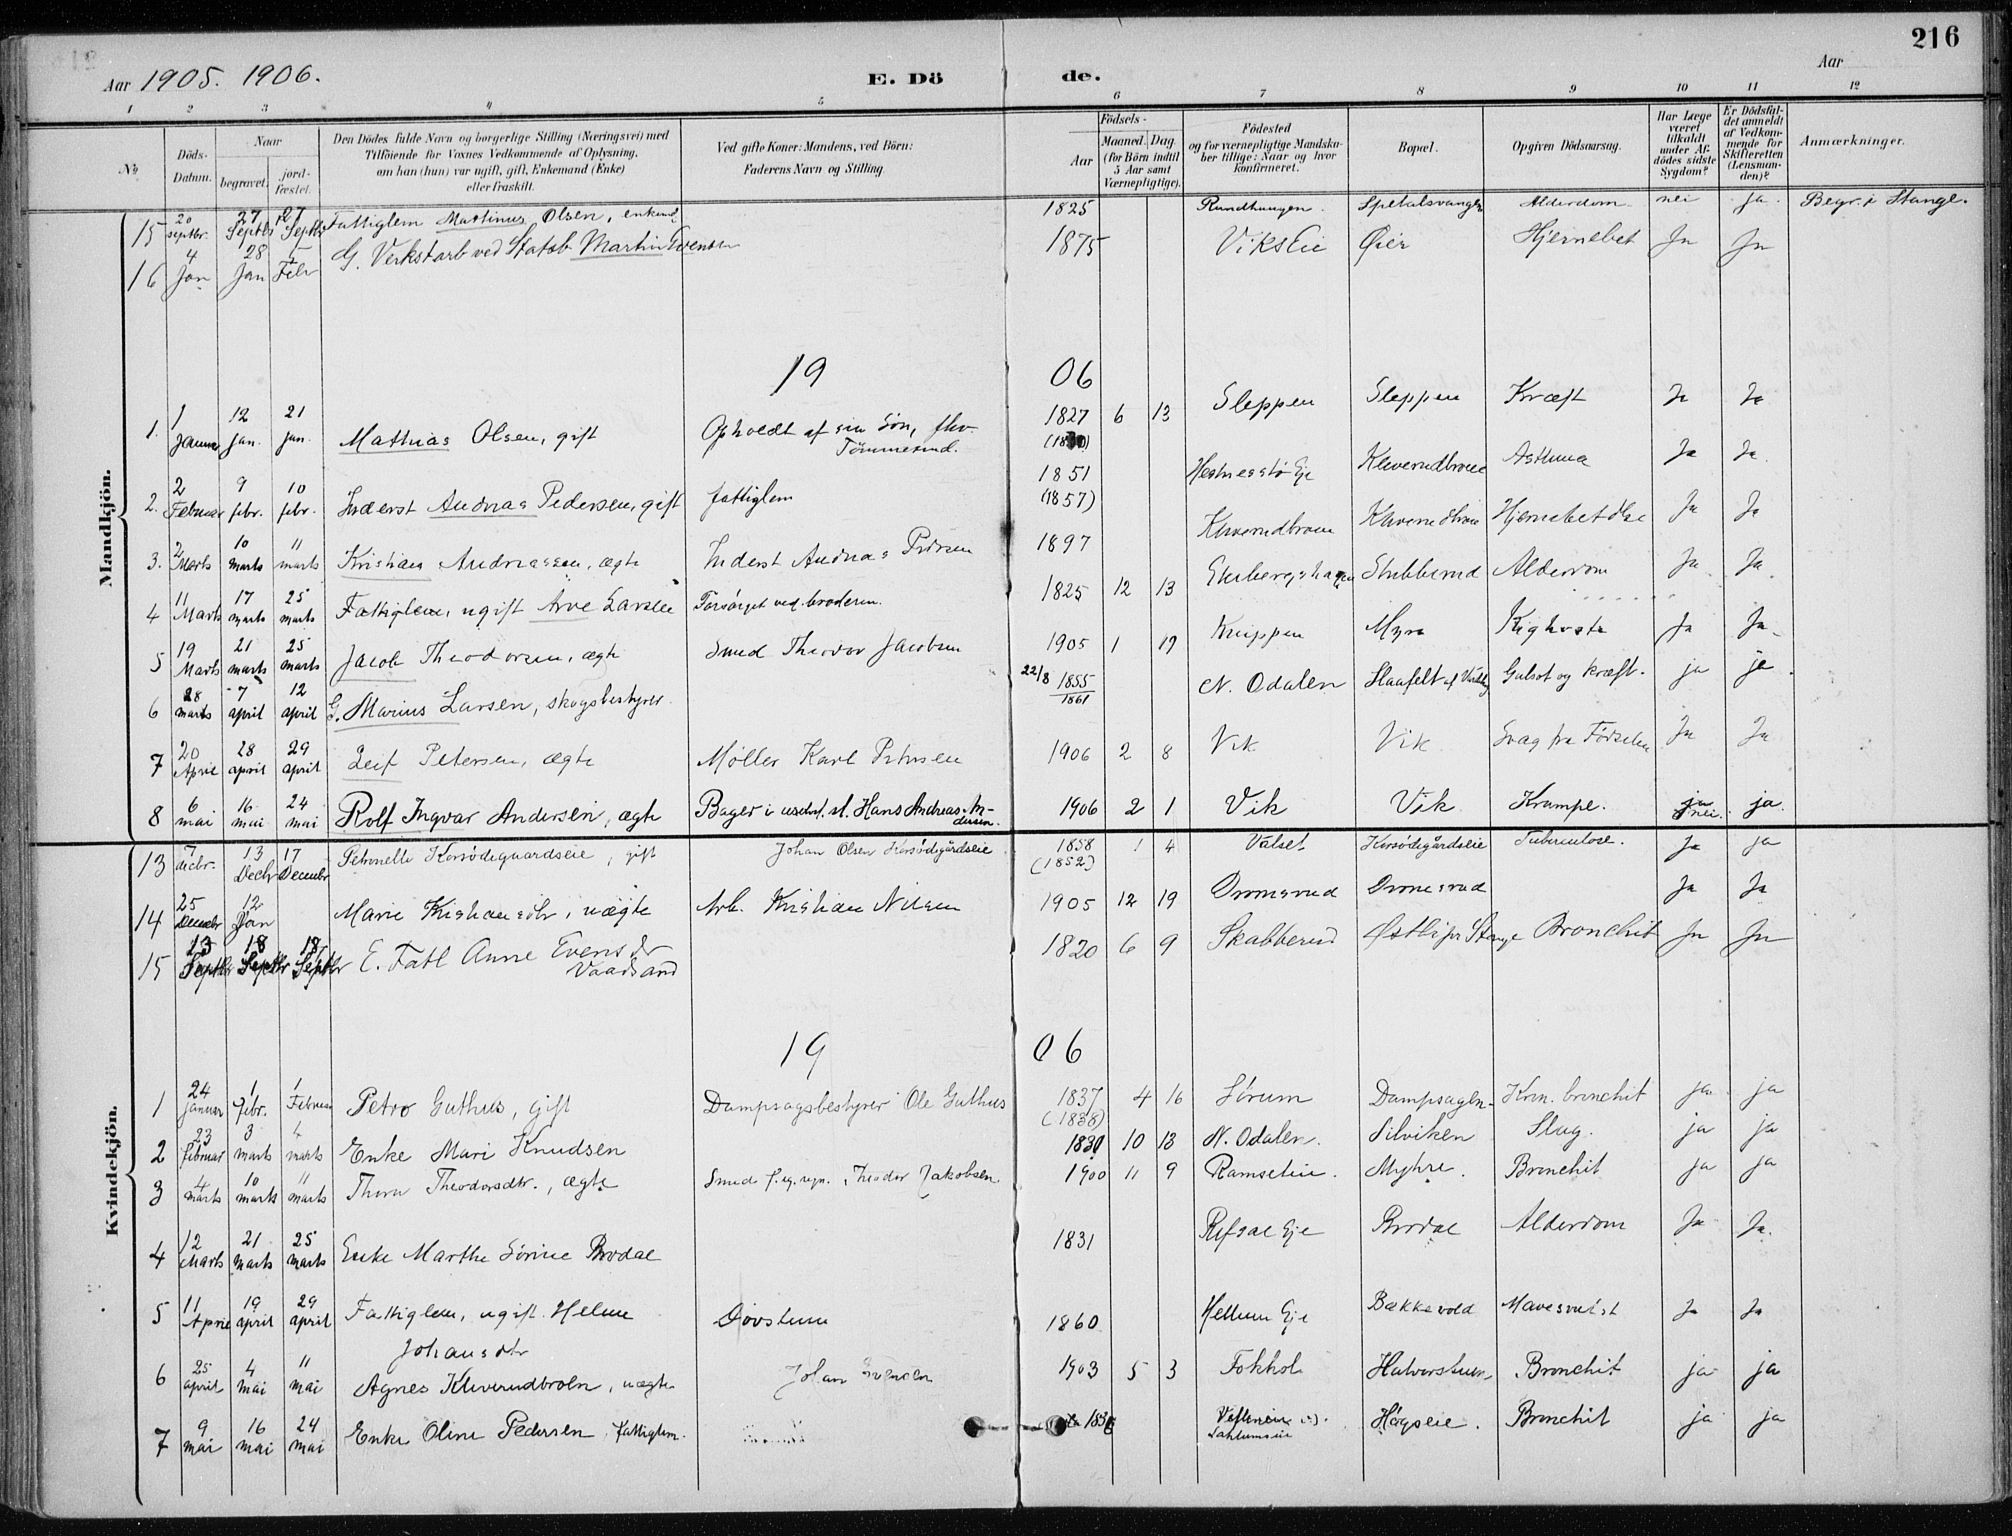 216
Aar 1905. 1906. E. Dö de. Aar
1 2 3 4 5 6 7 8 9 10 11 12
No. Döds-Datum. Naar begravet. jord-fæstet. Den Dödes fulde Navn og borgerlige Stilling (Næringsvei) med Tilföiende for Voxnes Vedkommende af Oplysning, om han (hun) var ugift, gift, Enkemand (Enke) eller fraskilt. Ved gifte Koner: Mandens, ved Börn: Faderens Navn og Stilling. Födsels- Aar Maaned Dag. (for Börn indtil 5 Aar samt Værnepligtige). Födested og for værnepligtige Mandskaber tillige: Naar og hvor konfirmeret. Bopæl. Opgiven Dödsaarsag. Har Læge været tilkaldt under Afdödes sidste Sygdom? Er Dödsfaldet anmeldt af Vedkommende for Skifteretten (Lensmanden)? Anmærkninger.
Mandkjön.
15 20 septbr. 27 Septbr 27 Septbr Fattiglem Martinus Olsen, enkem. 1825 Rundhaugen. Spetalsvangen Alderdom. nei ja. Begr. i Stange.
16 4 Jan 28 Jan Febr G. Verkstarb ved Statsb Martin Evensen 1875 Vikseie Øier Hjernebet Ja Ja
19 06
1. 1 Januar 12 jan. 21 jan. Mathias Olsen, gift Opholdt af sin Søn, fhv. Tømmermd. 1827 6 13 Sleppen Sleppen Kræft Ja Ja
2. 2 Februar 9 febr. 10 febr. Inderst Andreas Pedersen, gift fattiglem 1851 (1857) Eje Kleverudbroen Asthma Ja Ja.
3. 2 Marts 10 marts 11 marts Kristian Andreassen, ægte Inderst Andreas Pedersen 1897 Kleverudbroen Kleverudbroen Ja Ja
4 11 Marts 17 marts 25 marts Fattiglem, ugift Arve Larsen Forsørget ved broderen. 1825 12 13 Ekebergshagen Stubberud Alderdom Ja Ja.
5 19 Marts 21 marts 25 marts Jacob Theodorsen, ægte Smed Theodor Jacobsen 1905 1 19 Knippen Myre Kighoste Ja Ja
6 28 marts 7 april 12 april G. Marius Larsen, skogsbestyrer 22/8 1855 1861 N. Odalen Gulsot og kræft. ja ja
7 20 April 28 april 29 april Leif Petersen, ægte Møller Karl Petersen 1906 2 8 Vik Vik Svag fra Fødselen Ja Ja
8 6 mai 16 mai 24 mai Rolf Ingvar Andersen, ægte Bager Hans Andreas Andersen. 1906 2 1 Vik Vik Krampe. ja nei. ja.
Kvindekjön.
13 7 decbr. 13 Decbr 17 Decembr Petronelle Korsødegaardseie, gift Johan Olsen Korsødegårdseie 1858 (1852) 1 4 Valset Korsødegårdseie Tuberculose. Ja ja
14 25 Decembr 12 Jan Marie Kristiansdtr, uægte Arb. Kristian Nilsen 1905 12 19 Dromsrud Dromsrud Ja Ja
15 13 Septbr 18 Septbr 18 Septbr E. Fatl Anne Evensdr Vaadsand 1820 6 9 Skabberud Østli pr Stange Bronchit Ja Ja
19 06
1 24 januar 1 febr. 1 Februar Petro Guthus, gift Dampsagsbestyrer Ole Guthus 1837 (1838) 4 16 Sørum Dampsagen Kron. bronchit ja ja
2 23 februar 3 marts 4 marts Enke Mari Knudsen 1830 10 13 N. Odalen. Silviken Slag. ja ja
3 4 marts 10 marts 11 marts Thora Theodorsdtr., ægte Smed Theodor Jakobsen 1900 11 9 Ramseteie. Myhre. Bronchit ja ja
4 12 Marts 21 marts 25 marts Enke Marthe Sørine Brodal 1831 Refsal Eje Brodal Alderdom Ja Ja.
5 11 April 19 april 29 april Fattiglem, ugift. Helene Johansdtr Døvstum 1860 Hellum Eje Bækkevold Ja Ja
6 25 april 4 mai 11 mai Agnes Kleverudbroen, uægte Johan 1903 5 3 Fokhol Halvorstuen Bronchit ja ja
7 9 mai 16 mai 24 mai Enke Oline Pedersen, fattiglem. Sahlumseie Høgseie. Bronchit ja ja